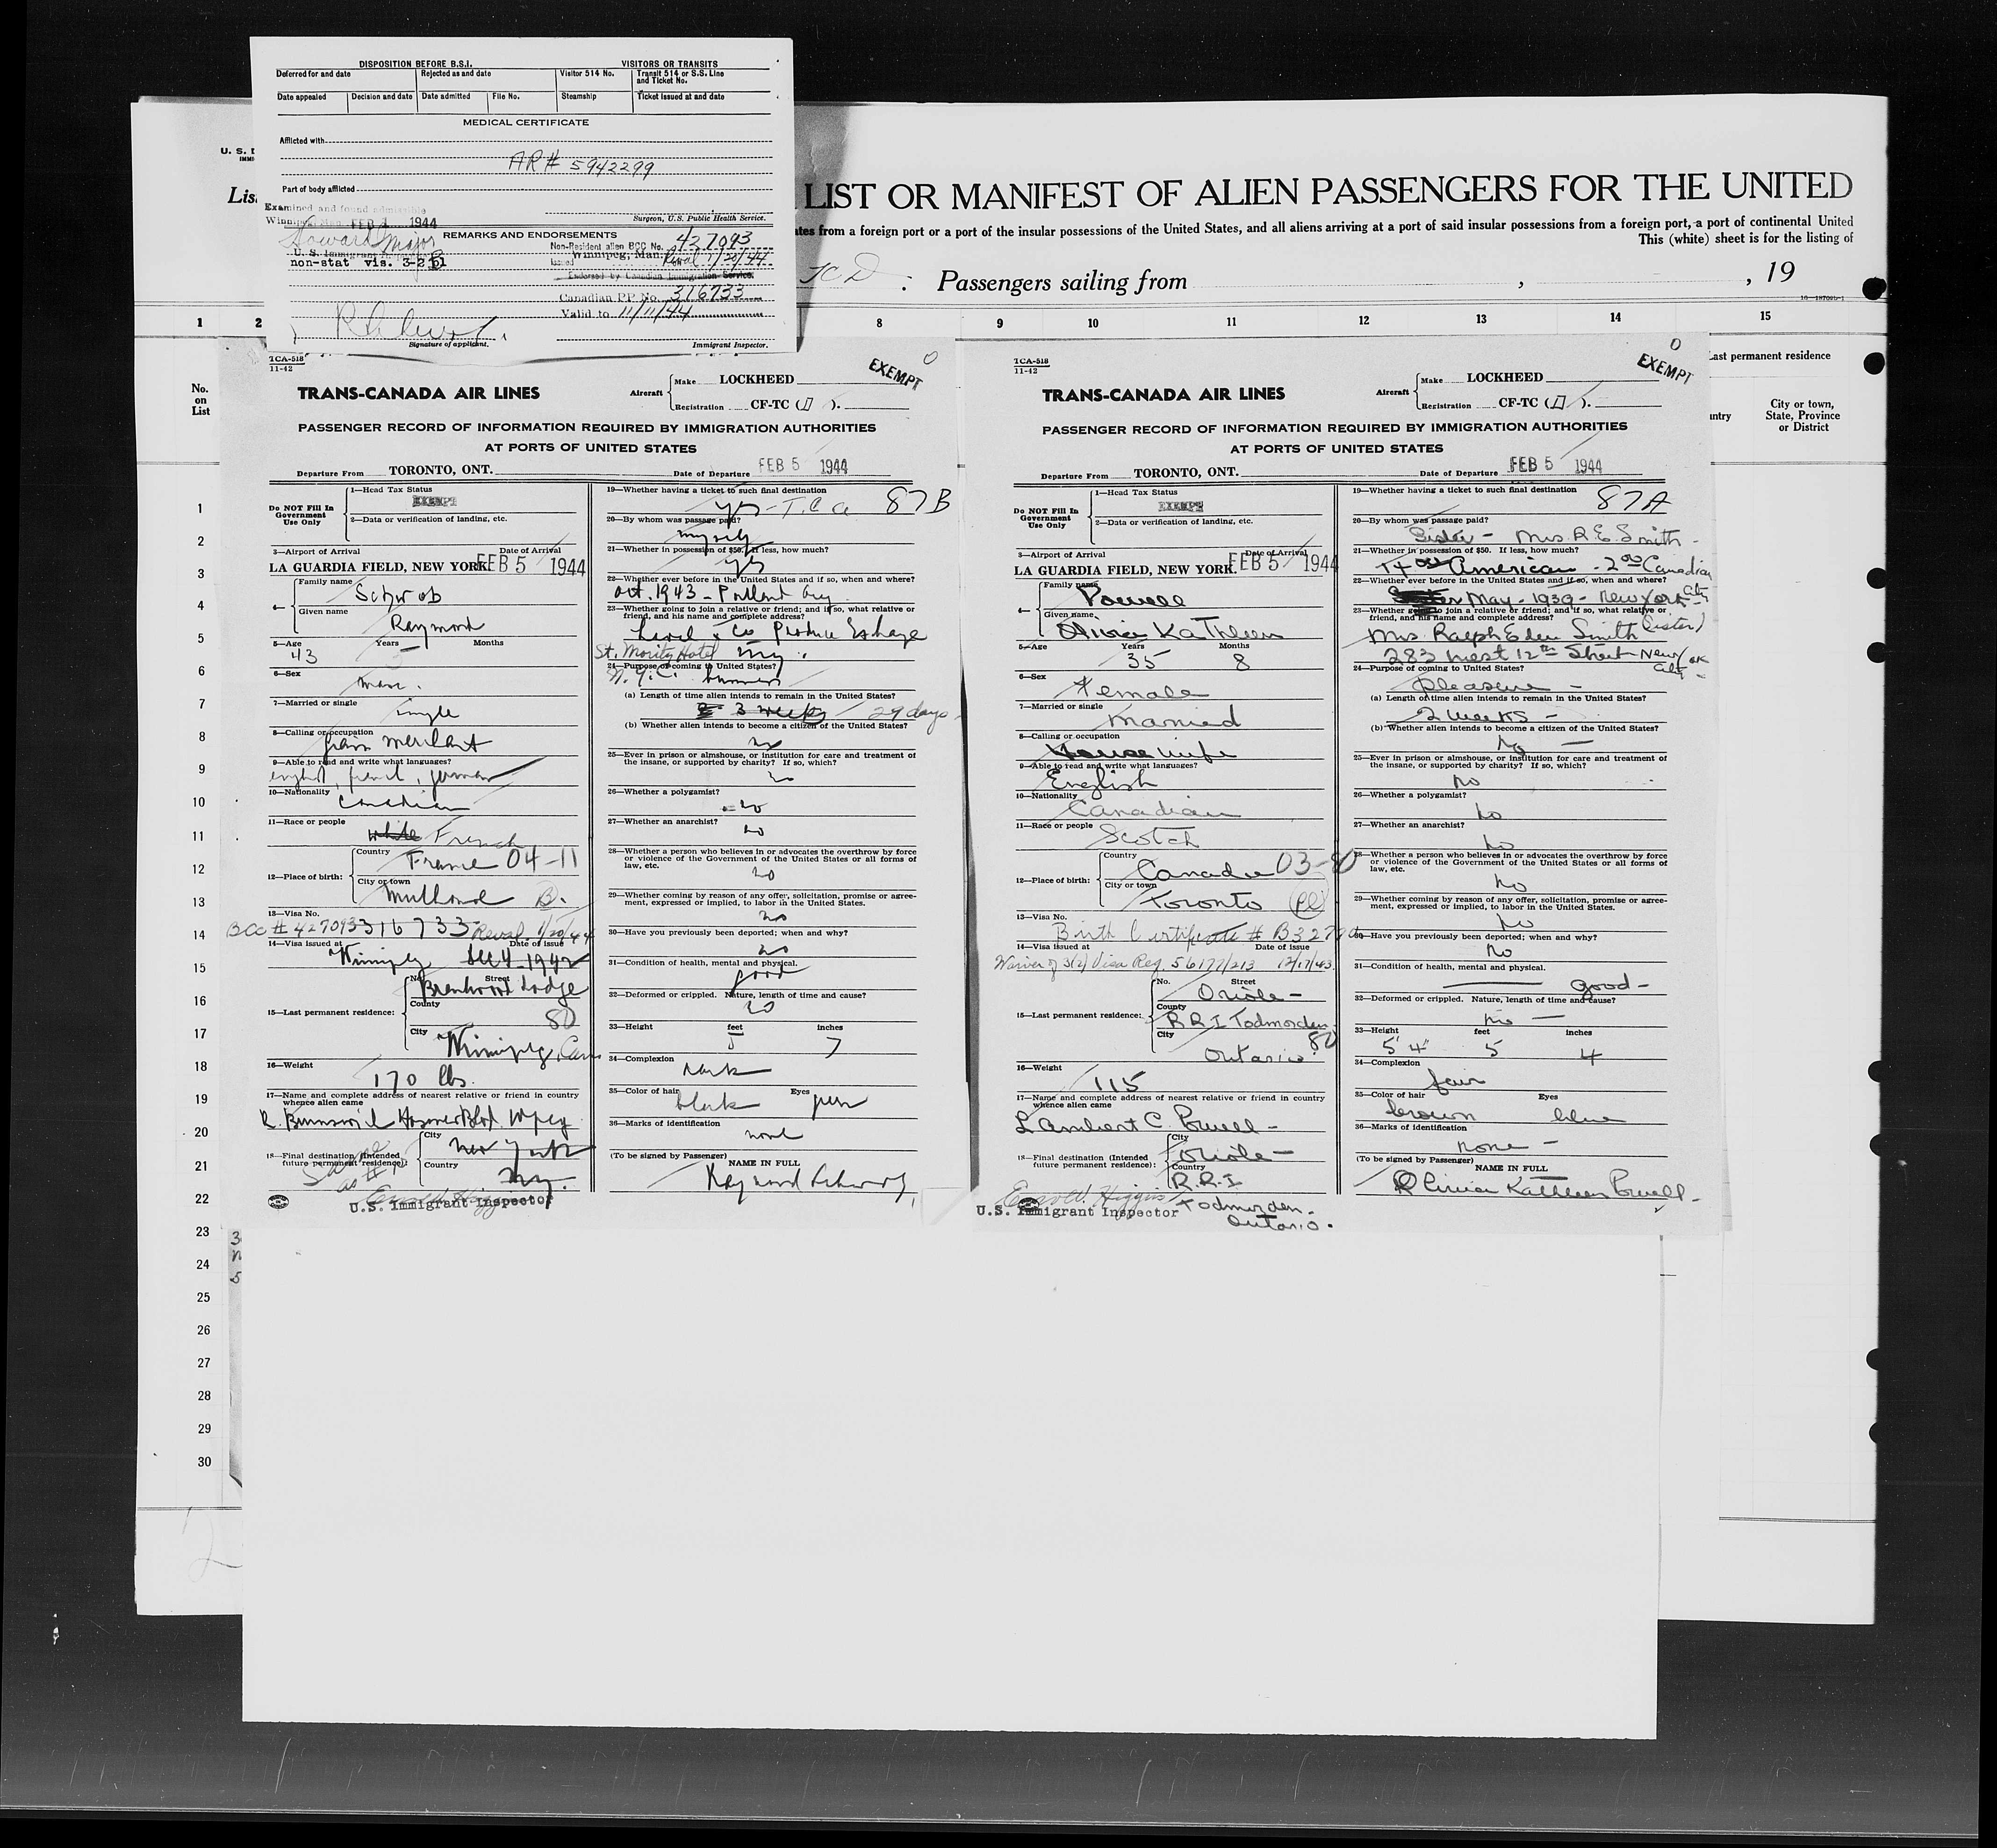 DISPOSITION BEFORE B.S.I. VISITORS OR TRANSITS
Deferred for and date Rejected as and date Visitor 514 No. Transit 514 or S.S. Line and Ticket No.
Date appealed Decision and date Date admitted File No. Steamship Ticket issued at and date
MEDICAL CERTIFICATE
Afflicted with
AR# 5942299
Part of body afflicted
Examined and found admissible
Surgeon, U.S. Public Health Service.
FEB 1944
REMARKS AND ENDORSEMENTS
Howard Major
U.S. Immigrant
non-stat vis. 3-2
Non-Resident alien BCC No. 427093
Winnipeg, Man. Reval 1/20/44
Endorsed by Canadian Immigration Service.
Canadian PP No. 316733
Valid to 11/11/44
Signature of applicant.
Immigrant Inspector.
LIST OR MANIFEST OF ALIEN PASSENGERS FOR THE UNITED
ates from a foreign port or a port of the insular possessions of the United States, and all aliens arriving at a port of said insular possessions from a foreign port, a port of continental United
This (white) sheet is for the listing of
Passengers sailing from , , 19
1 2 8 9 10 11 12 13 14 15
No. on List
Last permanent residence
City or town, State, Province or District
1
2
3
4
5
6
7
8
9
10
11
12
13
14
15
16
17
18
19
20
21
22
23
24
25
26
27
28
29
30
TCA-518
11-42
EXEMPT
TRANS-CANADA AIR LINES
Aircraft Make LOCKHEED
Registration CF-TC (D).
PASSENGER RECORD OF INFORMATION REQUIRED BY IMMIGRATION AUTHORITIES
AT PORTS OF UNITED STATES
Departure From TORONTO, ONT. Date of Departure FEB 5 1944
Do NOT Fill In Government Use Only
1—Head Tax Status
EXEMPT
2—Data or verification of landing, etc.
3—Airport of Arrival Date of Arrival
LA GUARDIA FIELD, NEW YORK. FEB 5 1944
4— Family name
Schwob
Given name
Raymond
5—Age Years Months
43
6—Sex
7—Married or single
single
8—Calling or occupation
grain merchant
9—Able to read and write what languages?
english, french, german
10—Nationality
Canadian
11—Race or people
white French
12—Place of birth: Country
France 04-11
City or town
B.
13—Visa No.
BCC # 427093 316733 Reval 1/20/44
14—Visa issued at Date of issue
Winnipeg 1942
15—Last permanent residence: No. Street
Brentwood Lodge
County
80
City
Winnipeg, Can
16—Weight
170 lbs.
17—Name and complete address of nearest relative or friend in country whence alien came
18—Final destination (Intended future permanent residence): City
New York
Country
N.Y.
U.S. Immigrant Inspector
19—Whether having a ticket to such final destination
yes - T.C.A. 87B
20—By whom was passage paid?
myself
21—Whether in possession of $50. If less, how much?
yes
22—Whether ever before in the United States and if so, when and where?
Oct. 1943 - Portland
23—Whether going to join a relative or friend; and if so, what relative or friend, and his name and complete address?
& Co Produce Exchange
St. Moritz Hotel N.Y.
24—Purpose of coming to United States?
N.Y.C. business
(a) Length of time alien intends to remain in the United States?
3 weeks 29 days
(b) Whether alien intends to become a citizen of the United States?
no
25—Ever in prison or almshouse, or institution for care and treatment of the insane, or supported by charity? If so, which?
no
26—Whether a polygamist?
no
27—Whether an anarchist?
no
28—Whether a person who believes in or advocates the overthrow by force or violence of the Government of the United States or all forms of law, etc.
no
29—Whether coming by reason of any offer, solicitation, promise or agreement, expressed or implied, to labor in the United States.
no
30—Have you previously been deported; when and why?
no
31—Condition of health, mental and physical.
good
32—Deformed or crippled. Nature, length of time and cause?
no
33—Height feet inches
5 7
34—Complexion
dark
35—Color of hair Eyes
black
36—Marks of identification
none
(To be signed by Passenger) NAME IN FULL
TCA-518
11-42
EXEMPT
TRANS-CANADA AIR LINES
Aircraft Make LOCKHEED
Registration CF-TC (D).
PASSENGER RECORD OF INFORMATION REQUIRED BY IMMIGRATION AUTHORITIES
AT PORTS OF UNITED STATES
Departure From TORONTO, ONT. Date of Departure FEB 5 1944
Do NOT Fill In Government Use Only
1—Head Tax Status
EXEMPT
2—Data or verification of landing, etc.
3—Airport of Arrival Date of Arrival
LA GUARDIA FIELD, NEW YORK. FEB 5 1944
4— Family name
Powell
Given name
Olivia Kathleen
5—Age Years Months
35 8
6—Sex
Female
7—Married or single
married
8—Calling or occupation
Housewife
9—Able to read and write what languages?
English
10—Nationality
Canadian
11—Race or people
Scotch
12—Place of birth: Country
Canada 03-80
City or town
Toronto
13—Visa No.
Birth Certificate # B
14—Visa issued at Date of issue
Waiver of 3(2) Visa Reg. 56177/213 12/17/43
15—Last permanent residence: No. Street
Oriole -
County
R R I Todmorden
City
Ontario 80
16—Weight
115
17—Name and complete address of nearest relative or friend in country whence alien came
Lambert C. Powell -
18—Final destination (Intended future permanent residence): City
Oriole -
Country
R.R.I
Todmorden -
Ontario.
U.S. Immigrant Inspector
19—Whether having a ticket to such final destination
87A
20—By whom was passage paid?
Sister - Mrs. R E Smith -
21—Whether in possession of $50. If less, how much?
American - 2 00 Canadian
22—Whether ever before in the United States and if so, when and where?
May - 1939 - New York City
23—Whether going to join a relative or friend; and if so, what relative or friend, and his name and complete address?
Mrs. Ralph Eden Smith (Sister)
283 West 12th Street New York City -
24—Purpose of coming to United States?
Pleasure -
(a) Length of time alien intends to remain in the United States?
2 weeks -
(b) Whether alien intends to become a citizen of the United States?
No -
25—Ever in prison or almshouse, or institution for care and treatment of the insane, or supported by charity? If so, which?
no
26—Whether a polygamist?
no
27—Whether an anarchist?
no
28—Whether a person who believes in or advocates the overthrow by force or violence of the Government of the United States or all forms of law, etc.
no
29—Whether coming by reason of any offer, solicitation, promise or agreement, expressed or implied, to labor in the United States.
no
30—Have you previously been deported; when and why?
no
31—Condition of health, mental and physical.
good -
32—Deformed or crippled. Nature, length of time and cause?
no -
33—Height feet inches
5' 4" 5 4
34—Complexion
fair
35—Color of hair Eyes
brown blue
36—Marks of identification
none -
(To be signed by Passenger) NAME IN FULL
Olivia Kathleen Powell -